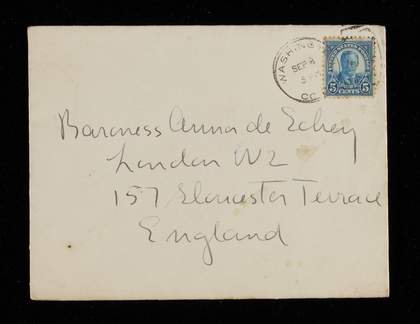 WASHING
SEP 8
5 PM
UNITED STATES POSTAGE
5 CENTS 5
Baroness Anna de
London W2
157 Gloucester Terrace
England